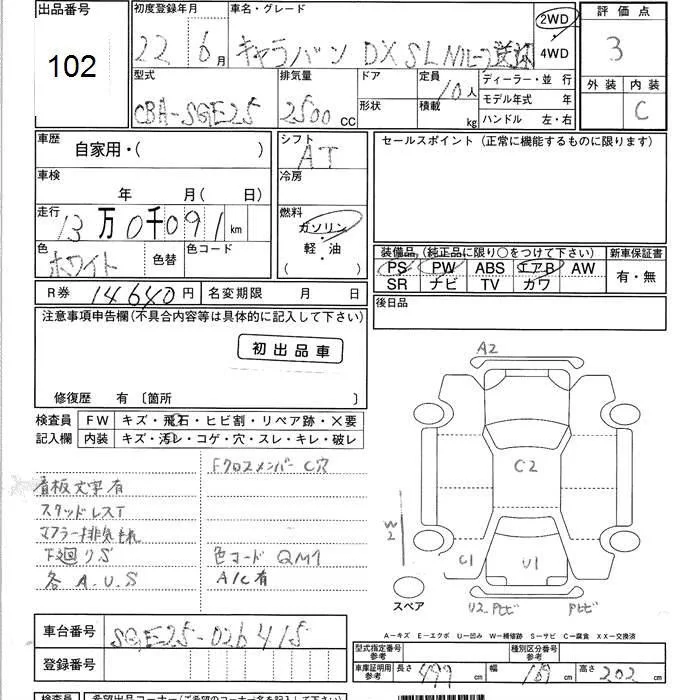 出品番号 初度登録年月 車名・グレード 2WD 4WD 評価点
102 22年 6月 キャラバン DX SL 3
外装 内装
C
型式 排気量 ドア 定員 10人 ディーラー・並行
CBA-SGE25 2500 CC 形状 積載 kg モデル年式 年
ハンドル 左・右
車歴 自家用・( )
シフト AT
セールスポイント (正常に機能するものに限ります)
車検 年 月( 日)
冷房
走行 13万0千091 km
燃料 ガソリン 軽・油 ( )
色 ホワイト 色替 色コード
装備品 (純正品に限り○をつけて下さい) 新車保証書
PS PW ABS エアB AW 有・無
SR ナビ TV カワ
R券 14640円 名変期限 月 日
後日品
注意事項申告欄(不具合内容等は具体的に記入して下さい)
初出品車
修復歴 有 〔箇所 〕
検査員 FW キズ・飛石・ヒビ割・リペア跡・×要
記入欄 内装 キズ・汚レ・コゲ・穴・スレ・キレ・破レ
Fクロスメンバー C穴
看板文字有
スタッドレスT
マフラー排気もれ
下廻りS 色コード QM1
各 A.U.S A/C有
A2
C2
W2
C1
U1
スペア
U2 アトピ アトピ
車台番号 SGE25-026415
A−キズ E−エクボ U−凹み W−補修跡 S−サビ C−腐食 XX−交換済
登録番号
型式指定番号 参考 種別区分番号 参考
車庫証明用 参考 長さ 499 cm 幅 181 cm 高さ 202 cm
検査員 希望出品コーナー